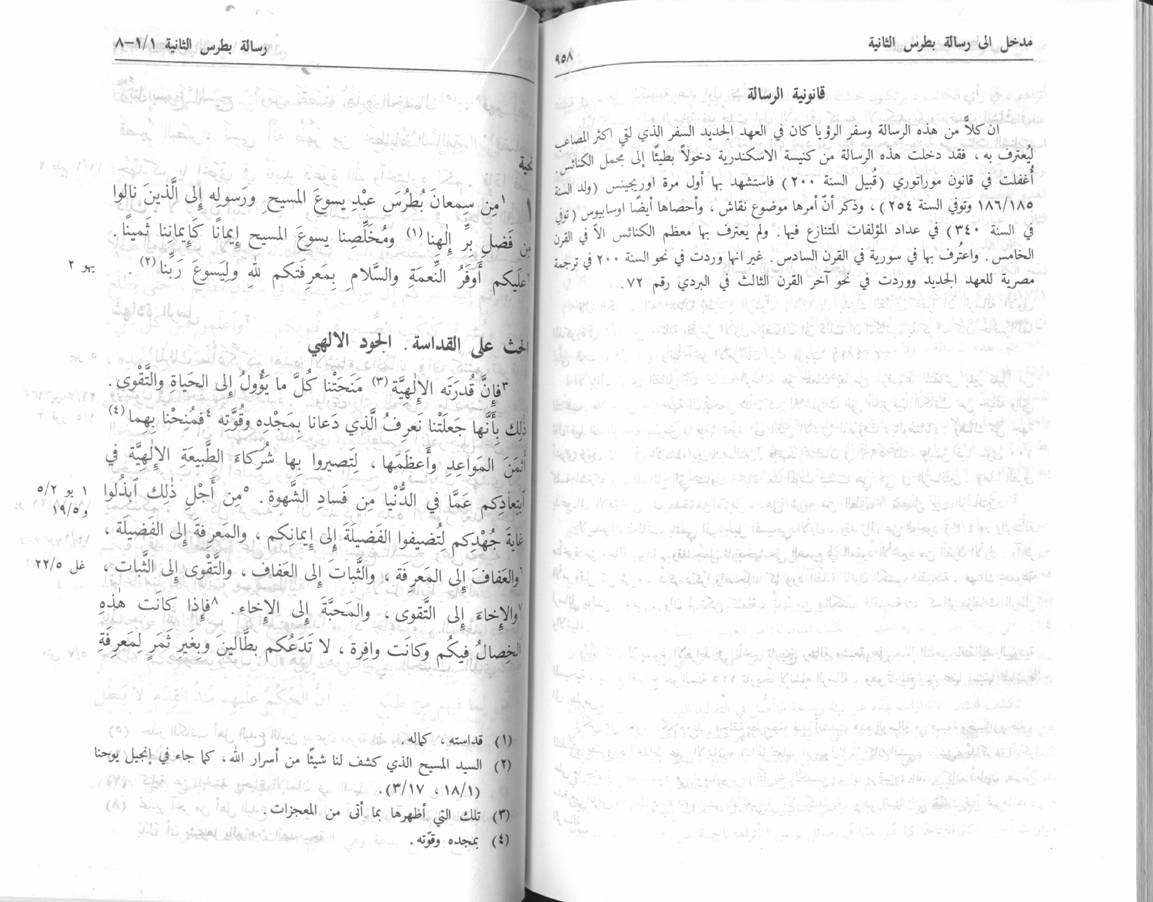 مدخل الى رسالة بطرس الثانية
٩٥٨
قانونية الرسالة
ان كلاًّ من هذه الرسالة وسفر الرؤيا كان في العهد الجديد السفر الذي لقي اكثر المصاعب
ليُعترف به ، فقد دخلت هذه الرسالة من كنيسة الاسكندرية دخولاً بطيئًا إلى مجمل الكنائس.
أُغفلت في قانون موراتوري (قُبيل السنة ٢٠٠) فاستشهد بها أول مرة اوريجينس (ولد السنة
١٨٦/١٨٥ وتوفي السنة ٢٥٤) ، وذكر أنّ أمرها موضوع نقاش ، وأحصاها أيضًا اوسابيوس (توفي
في السنة ٣٤٠) في عداد المؤلفات المتنازع فيها. ولم يعترف بها معظم الكنائس الاّ في القرن
الخامس. واعتُرف بها في سورية في القرن السادس. غير انها وردت في نحو السنة ٢٠٠ في ترجمة
مصرية للعهد الجديد ووردت في نحو آخر القرن الثالث في البردي رقم ٧٢.
رسالة بطرس الثانية ١/١-٨
تحية
١ ١مِن سِمعانَ بُطرُسَ عبْدِ يسوعَ المسيحِ ورَسولِه إِلى الَّذينَ نالوا
مِن فَضلِ بِرِّ إِلٰهِنا (١) ومُخَلِّصِنا يسوعَ المسيح إِيمانًا كَإِيمانِنا ثَمينًا .
٢علَيكم أَوفَرُ النِّعمَةِ والسَّلامِ بِمَعرِفَتِكم للهِ ولِيَسوعَ رَبِّنا (٢) .
يهو ٢
الحث على القداسة. الجود الالهي
٣فإِنَّ قُدرَتَه الإِلٰهِيَّة (٣) مَنَحَتْنا كُلَّ ما يَؤُولُ إِلى الحَياةِ والتَّقْوى.
ذٰلِك بِأَنَّها جَعَلَتْنا نَعرِفُ الَّذي دَعانا بِمَجْدِه وقُوَّتِه ٤فمُنِحْنا بِهِما (٤)
أَثمَنَ المَواعِدِ وأَعظَمَها ، لِتَصيروا بِها شُركاءَ الطَّبيعَةِ الإِلٰهِيَّةِ في
ابتِعادِكم عَمَّا في الدُّنْيا مِن فَسادِ الشَّهوة. ٥مِن أَجْلِ ذٰلِك ٱبذُلوا
١ يو ٥/٢
و١٩/٥
غايَةَ جُهْدِكم لِتُضيفوا الفَضيلَةَ إِلى إِيمانِكم ، والمَعرِفةَ إِلى الفَضيلَة ،
٦والعَفافَ إِلى المَعرِفة ، والثَّباتَ إِلى العَفاف، والتَّقْوى إِلى الثَّبات ،
غل ٢٢/٥
٧والإِخاءَ إِلى التَّقوى ، والمَحبَّةَ إِلى الإِخاء. ٨فإِذا كانَت هٰذِه
الخِصالُ فيكُم وكانَت وافِرة ، لا تَدَعُكم بَطَّالينَ وبغَيرِ ثَمَرٍ لِمَعرِفَةِ
(١) قداسته ، كماله.
(٢) السيد المسيح الذي كشف لنا شيئًا من أسرار الله، كما جاء في إنجيل يوحنا
(١٨/١ ، ٣/١٧).
(٣) تلك التي أظهرها بما أتى من المعجزات.
(٤) بمجده وقوّته.